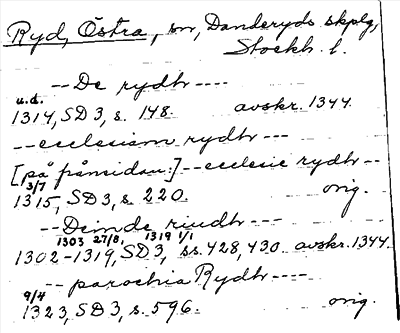 Ryd, Östra, sn, Danderyds skplg,
Stockh. l.
--De rydh---
u.d.
1314, SD 3, s. 148. avskr. 1344.
--ecclesiam rydh---
[på frånsidan:]--ecclesie rydh--
3/7
1315, SD 3, s. 220. orig.
--Deinde riudh---
1303 27/8, 1319 1/1
1302-1319, SD 3, ss. 428, 430. avskr. 1344.
--parochia Rydh----
9/4
1323, SD 3, s. 596. orig.